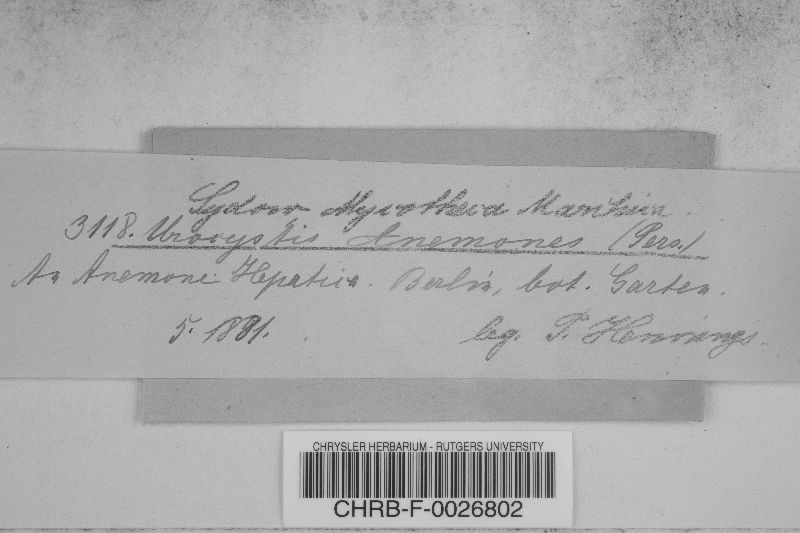 Sydow Mycotheca Marchica.
3118. Urocystis Anemones (Pers.)
An Anemone Hepatica. Berlin, bot. Garten.
5. 1891. leg. P. Hennings.
CHRYSLER HERBARIUM - RUTGERS UNIVERSITY
CHRB-F-0026802